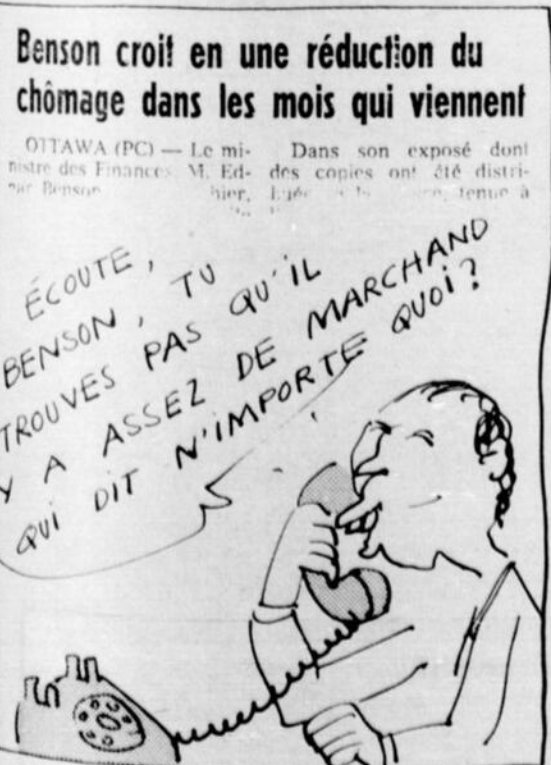 Benson croit en une réduction du
chômage dans les mois qui viennent
OTTAWA (PC) — Le mi-
nistre des Finances, M. Ed-
gar Benson hier,
Dans son exposé dont
des copies ont été distri-
tenue à
ÉCOUTE,
BENSON, TU
TROUVES PAS QU'IL
Y A ASSEZ DE MARCHAND
QUI DIT N'IMPORTE QUOI?